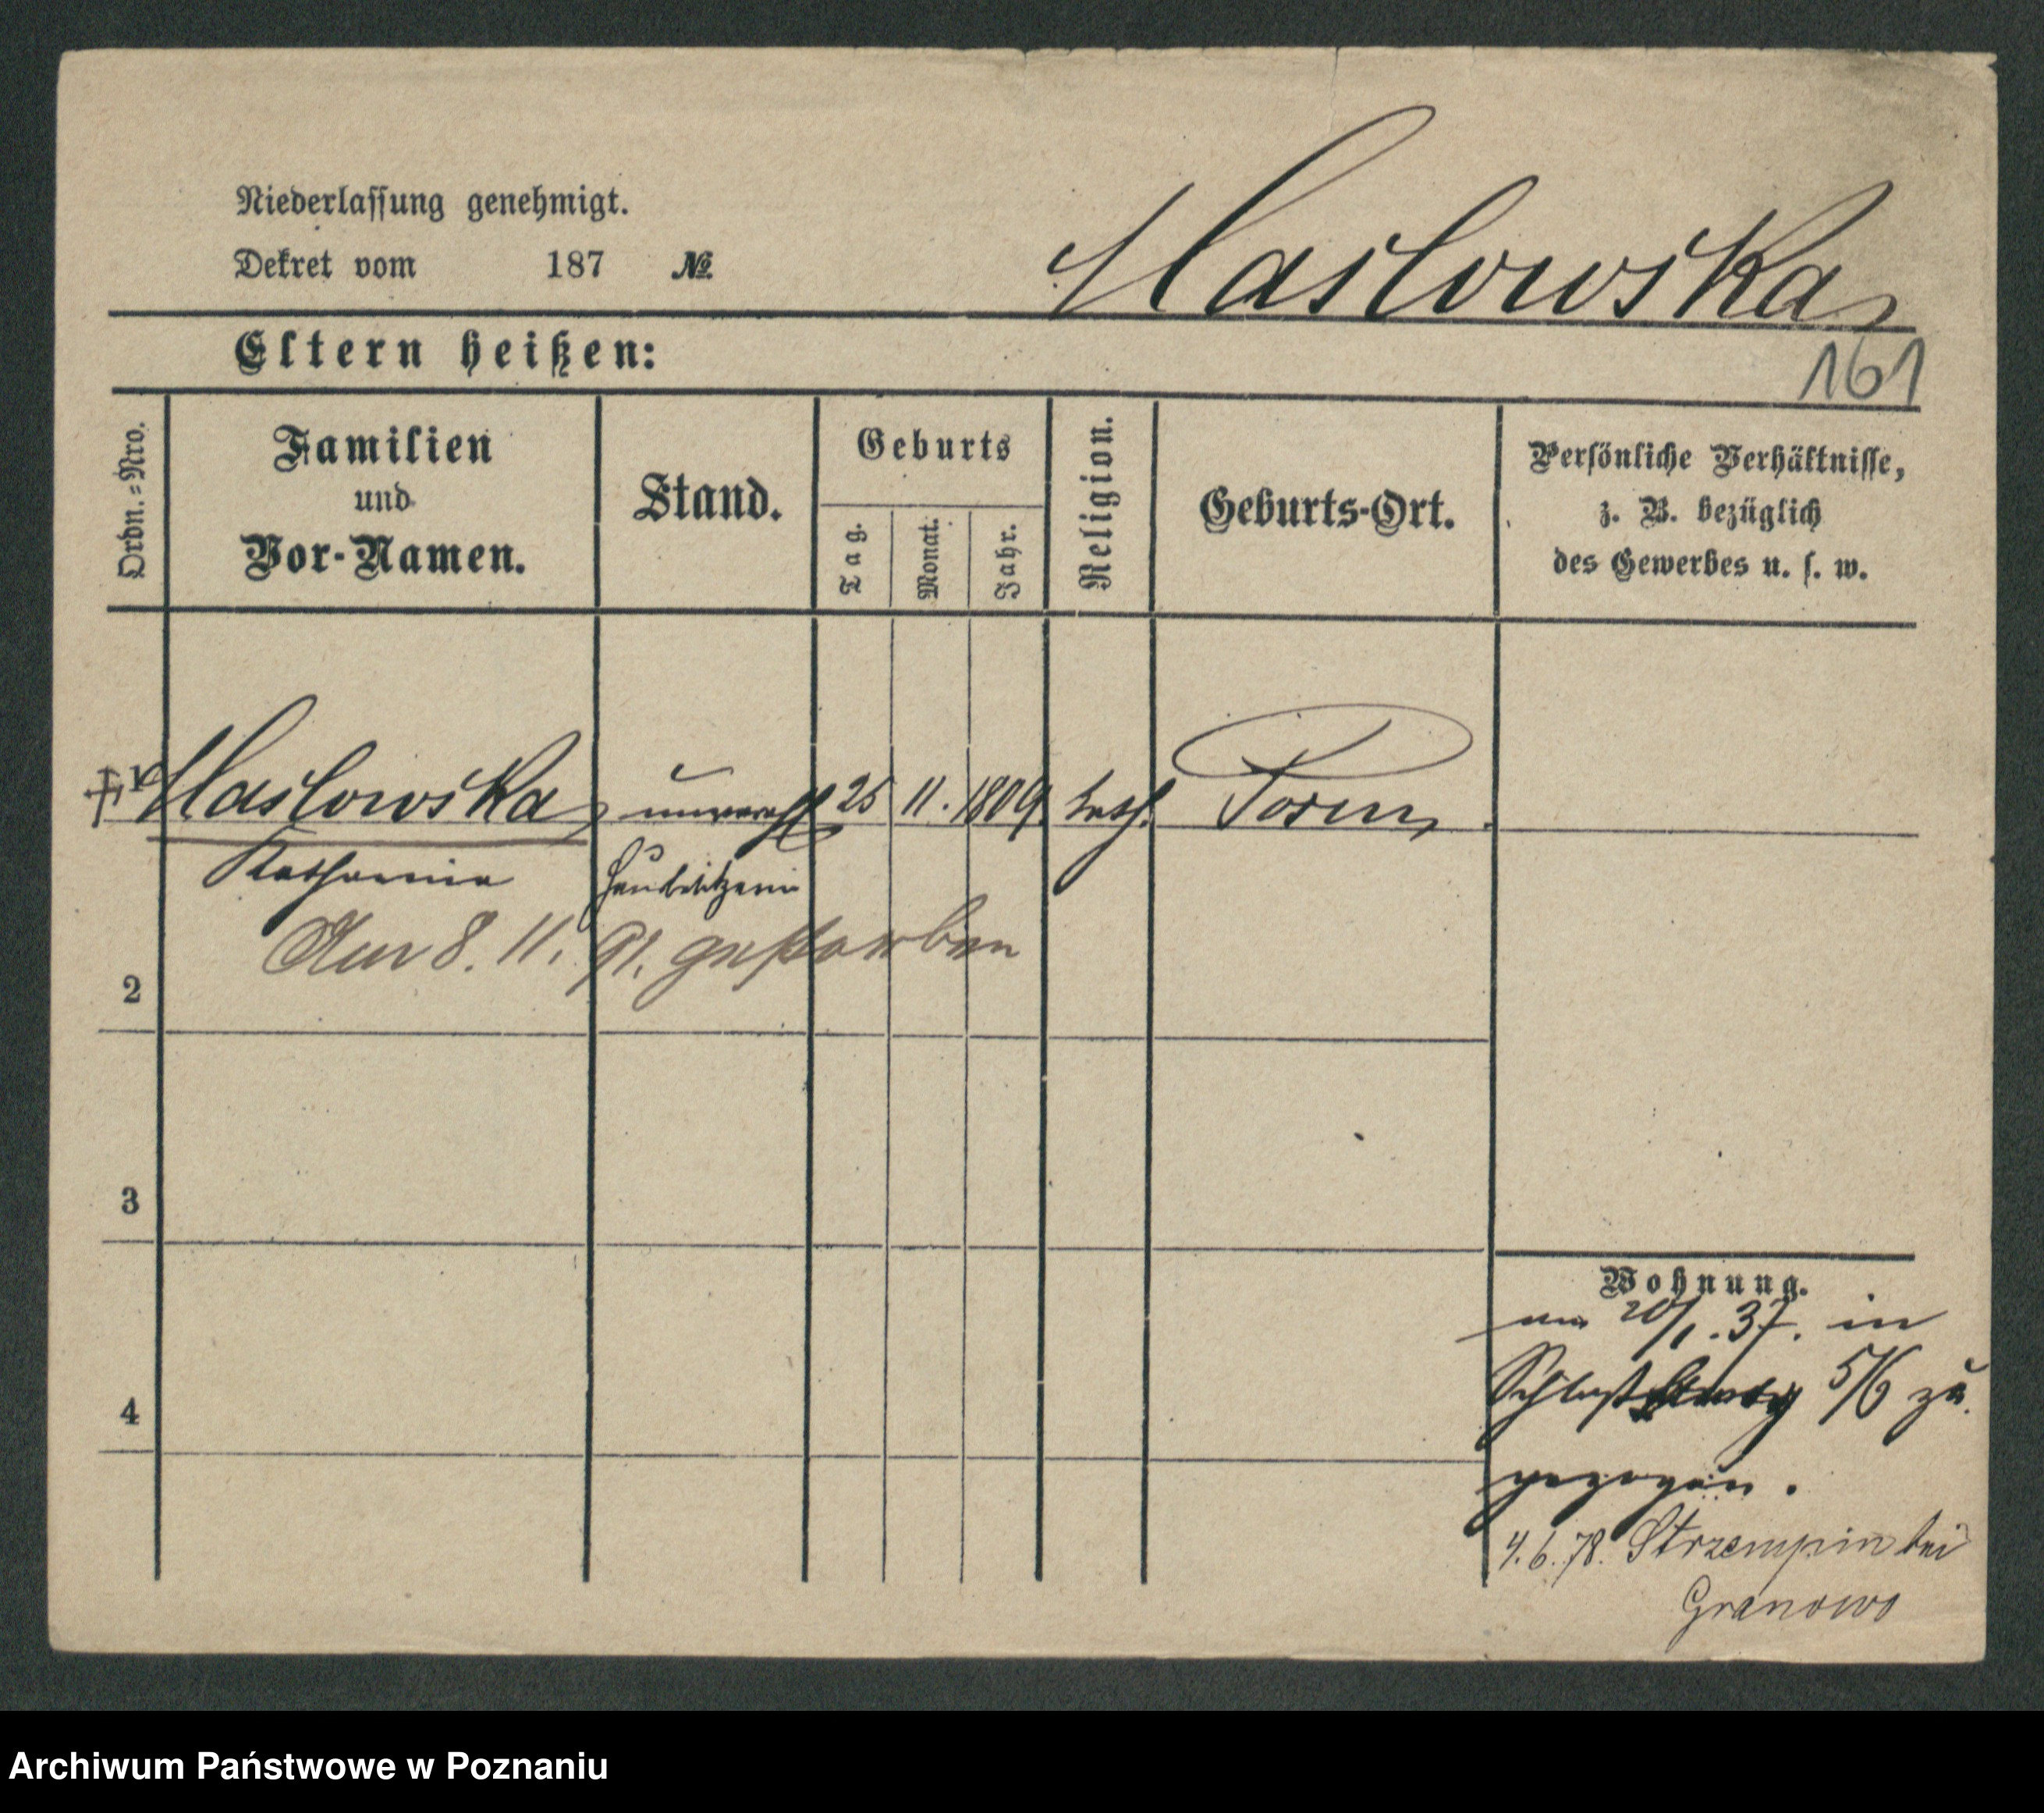 Niederlassung genehmigt.
Dekret vom 187 №
Maslowska
161
Eltern heißen:
Ordn.=Nro.
Familien
und
Vor-Namen.
Stand.
Geburts
Tag.
Monat.
Jahr.
Religion.
Geburts-Ort.
Persönliche Verhältnisse,
z. B. bezüglich
des Gewerbes u. s. w.
1 Maslowska unvereh 25 11. 1809 kath. Posen
Katharina Hausbesitzerin
Am 8. 11. 91. gestorben
2
3
4
Wohnung.
am 20/1. 37. in
5/6 zu
gezogen.
4. 6. 78. Strzempin bei
Granowo
Archiwum Państwowe w Poznaniu